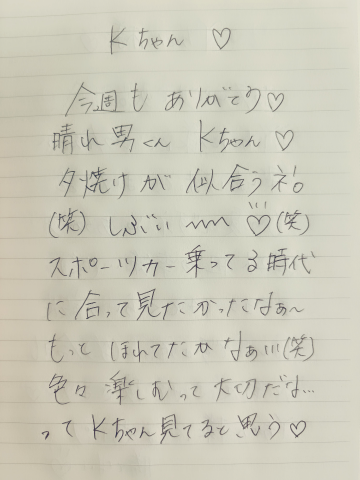 Kちゃん ♡
今週も ありがとう♡
晴れ男くん Kちゃん♡
夕焼けが 似合うネ!。
(笑) しぶい〰 ♡(笑)
スポーツカー乗ってる時代
に合って見たかったなぁ〜
もっと ほれてたかなぁ!!!(笑)
色々 楽しむって大切だな…
って Kちゃん見てると思う♡